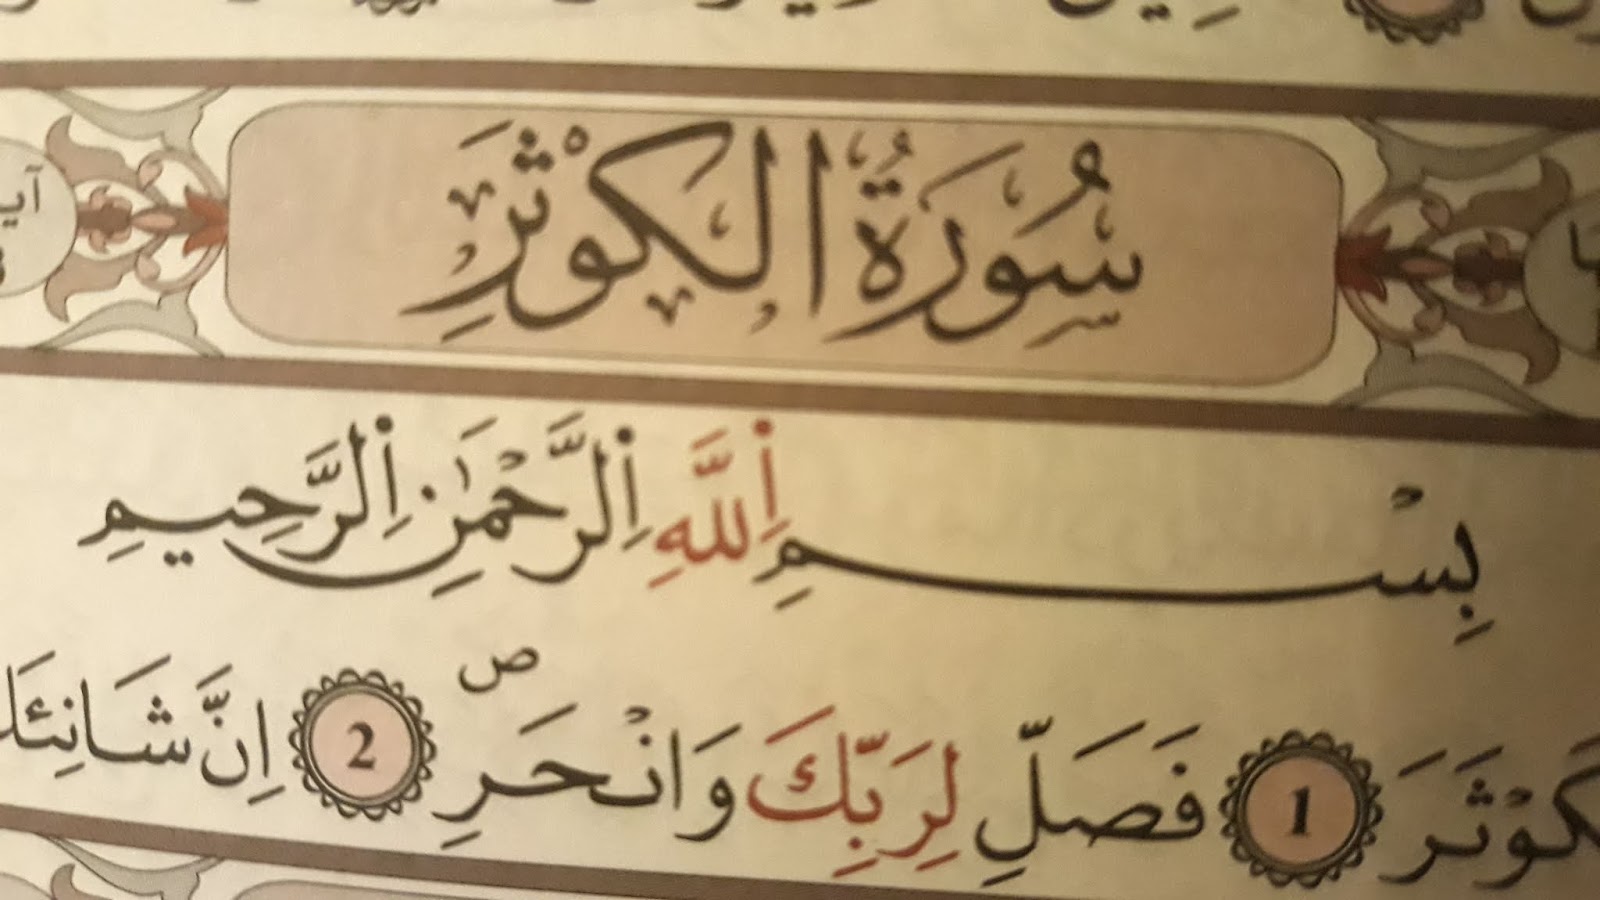 سُورَةُ الْكَوْثَرِ
بِسْمِ اِ۬للَّهِ اِ۬لرَّحْمَٰنِ اِ۬لرَّحِيمِ
كَوْثَرَ 1 فَصَلِّ لِرَبِّكَ وَانْحَرِ ص 2 اِنَّ